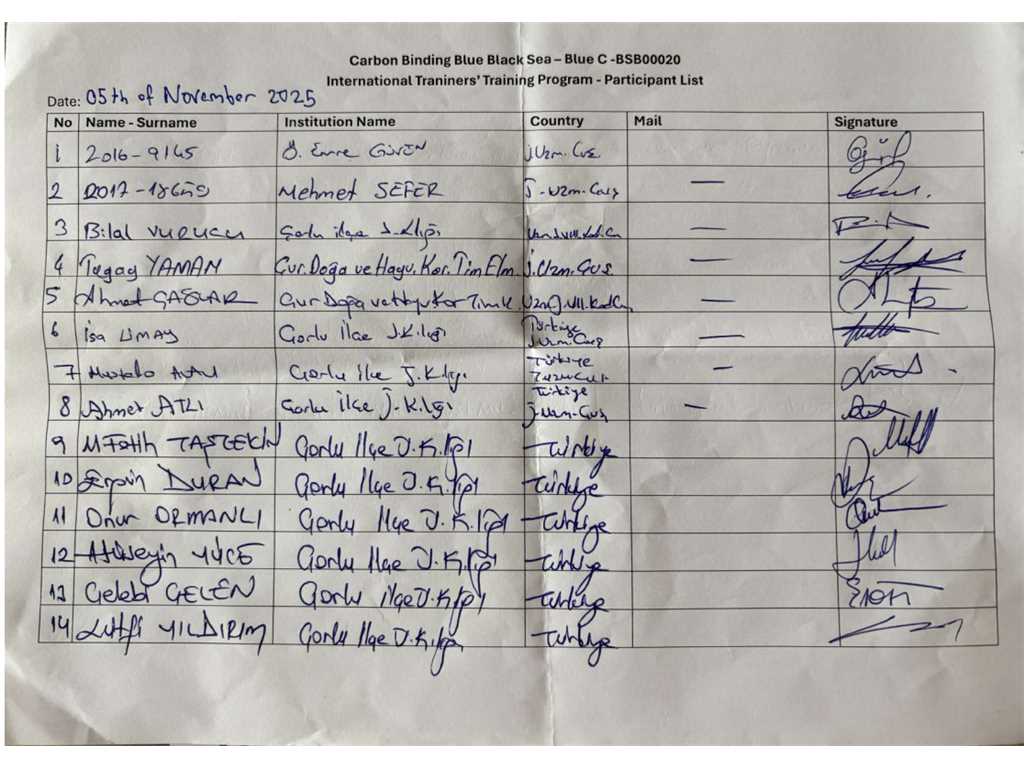 Carbon Binding Blue Black Sea – Blue C -BSB00020
International Traniners' Training Program - Participant List
Date: 05th of November 2025
No Name - Surname Institution Name Country Mail Signature
1 2016-9145 Ö. Emre GÜVEN J.Uzm.Çvş
2 2017-18680 Mehmet SEFER J-Uzm.Çavş —
3 Bilal VURUCU Çorlu ilçe J.Klığı —
4 Tugay YAMAN Çvr.Doğa ve Hayv.Kor.Tim Elm. J.Uzm.Çvş. —
5 Ahmet Çvr Doğa ve Hyv Kor Tim K. —
6 isa UMAY Çorlu İlçe J.K.lığı Türkiye J.Uzm.Çavş —
7 Çorlu ilçe J.K.lığı Türkiye —
8 Ahmet ATLI Çorlu İlçe J.K.lığı Türkiye J.Uzm.Çvş —
9 M Fatih TAŞTEKİN Çorlu İlçe J.K.lığı Türkiye
10 DURAN Çorlu İlçe J.K.lığı Türkiye
11 Onur ORMANLI Çorlu İlçe J.K.lığı Türkiye
12 Hüseyin YÜCE Çorlu İlçe J.K.lığı Türkiye
13 Çelebi GELEN Çorlu ilçe J.K.lığı Türkiye
14 Lütfi YILDIRIM Çorlu İlçe J.K.lığı Türkiye